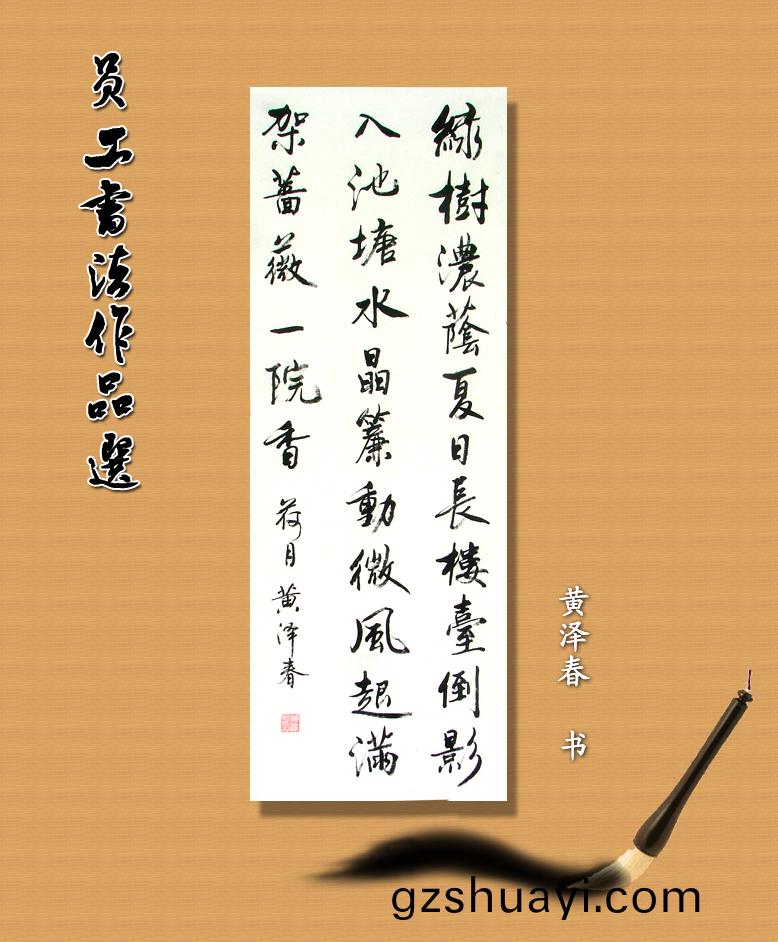 员工書法作品選
綠樹濃蔭夏日長樓臺倒影
入池塘水晶簾動微風起滿
架薔薇一院香
荷月黄泽春
黄泽春 书
gzshuayi.com